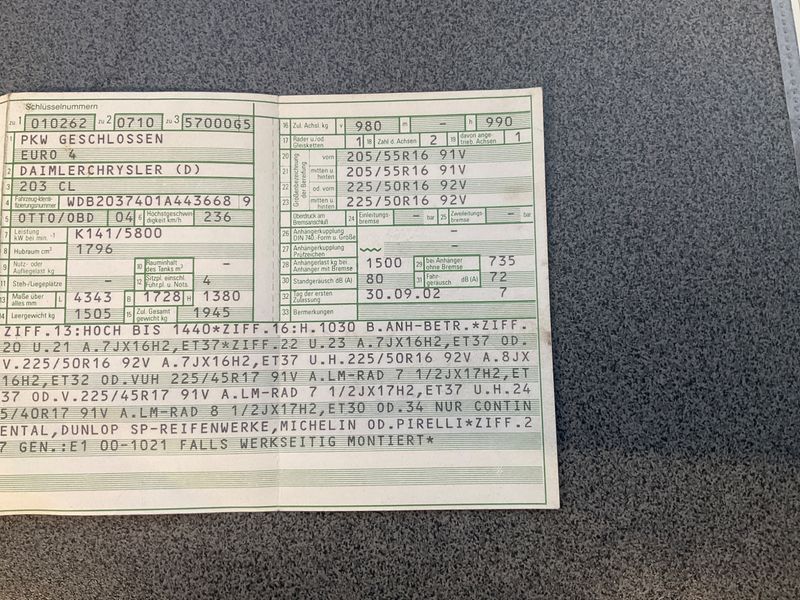 Schlüsselnummern
zu 1 010262 zu 2 0710 zu 3 5700065
1 PKW GESCHLOSSEN
EURO 4
2 DAIMLERCHRYSLER (D)
3 203 CL
4 Fahrzeug-Identifizierungsnummer WDB2037401A443668 9
5 OTTO/OBD 04 6 Höchstgeschwindigkeit km/h 236
7 Leistung kW bei min.-1 K141/5800
8 Hubraum cm³ 1796
9 Nutz- oder Aufliegelast kg - 10 Rauminhalt des Tanks m³ -
11 Steh-/Liegeplätze - 12 Sitzpl. einschl. Führ.pl. u. Nots. 4
13 Maße über alles mm L 4343 B 1728 H 1380
14 Leergewicht kg 1505 15 Zul. Gesamtgewicht kg 1945
16 Zul. Achsl. kg v 980 m - h 990
17 Räder u./od. Gleisketten 1 18 Zahl d. Achsen 2 19 davon angetrieb. Achsen 1
Größenbezeichnung der Bereifung
20 vorn 205/55R16 91V
21 mitten u. hinten 205/55R16 91V
22 od. vorn 225/50R16 92V
23 mitten u. hinten 225/50R16 92V
Überdruck am Bremsanschluß 24 Einleitungsbremse - bar 25 Zweileitungsbremse - bar
26 Anhängerkupplung DIN 740.-Form u. Größe -
27 Anhängerkupplung Prüfzeichen -
28 Anhängerlast kg bei Anhänger mit Bremse 1500 29 bei Anhänger ohne Bremse 735
30 Standgeräusch dB (A) 80 31 Fahrgeräusch dB (A) 72
32 Tag der ersten Zulassung 30.09.02 7
33 Bemerkungen
ZIFF.13:HOCH BIS 1440*ZIFF.16:H.1030 B.ANH-BETR.*ZIFF.
20 U.21 A.7JX16H2,ET37*ZIFF.22 U.23 A.7JX16H2,ET37 OD.
V.225/50R16 92V A.7JX16H2,ET37 U.H.225/50R16 92V A.8JX
16H2,ET32 OD.VUH 225/45R17 91V A.LM-RAD 7 1/2JX17H2,ET
37 OD.V.225/45R17 91V A.LM-RAD 7 1/2JX17H2,ET37 U.H.24
5/40R17 91V A.LM-RAD 8 1/2JX17H2,ET30 OD.34 NUR CONTIN
ENTAL,DUNLOP SP-REIFENWERKE,MICHELIN OD.PIRELLI*ZIFF.2
7 GEN.:E1 00-1021 FALLS WERKSEITIG MONTIERT*